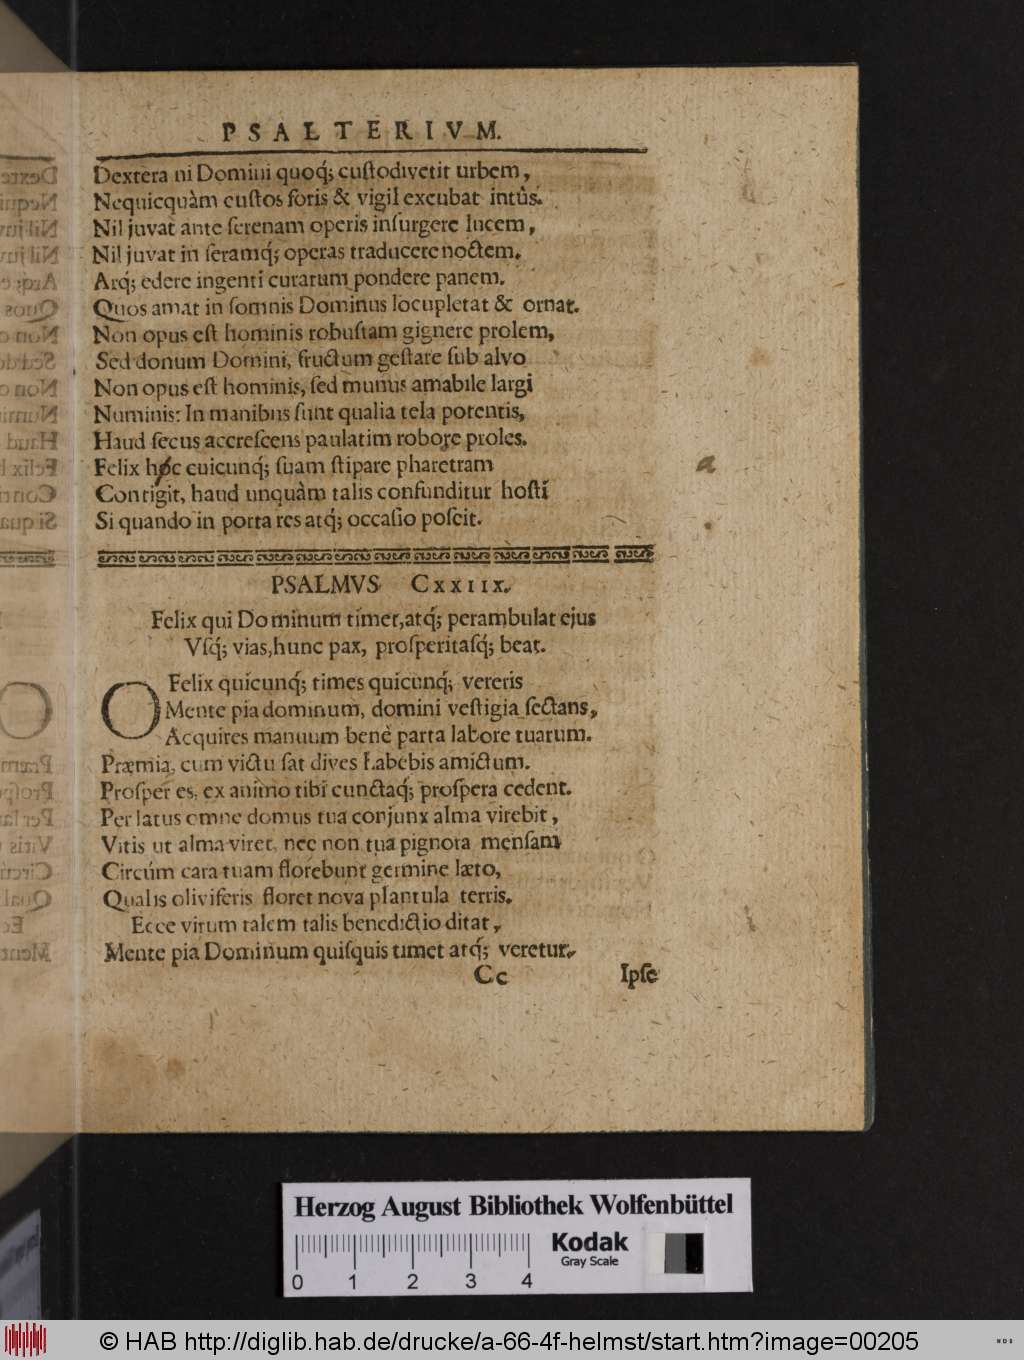 PSALTERIVM.
Dextera ni Domini quoq́; cuſtodiverit urbem,
Nequicquàm cuſtos foris & vigil excubat intùs.
Nil juvat ante ſerenam operis inſurgere lucem,
Nil juvat in ſeramq́; operas traducere noctem.
Atq́; edere ingenti curarum pondere panem.
Quos amat in ſomnis Dominus locupletat & ornat.
Non opus eſt hominis robuſtam gignere prolem,
Sed donum Domini, fructum geſtare ſub alvo
Non opus eſt hominis, ſed munus amabile largi
Numinis: In manibus ſunt qualia tela potentis,
Haud ſecus accreſcens paulatim robore proles.
Felix hac cuicunq́; ſuam ſtipare pharetram
Contigit, haud unquàm talis confunditur hoſti
Si quando in porta res atq́; occaſio poſcit.
a
PSALMVS CXXIIX.
Felix qui Dominum timet, atq́; perambulat ejus
Vſq́; vias, hunc pax, proſperitaſq́; beat.
O Felix quicunq́; times quicunq́; vereris
Mente pia dominum, domini veſtigia ſectans,
Acquires manuum benè parta labore tuarum.
Præmia, cum victu ſat dives habebis amictum.
Proſper es, ex animo tibi cunctaq́; proſpera cedent.
Per latus omne domus tua conjunx alma virebit,
Vitis ut alma viret, nec non tua pignora menſam
Circúm cara tuam florebunt germine læto,
Qualis oliviferis floret nova plantula terris.
Ecce virum talem talis benedictio ditat,
Mente pia Dominum quiſquis timet atq́; veretur.
Cc Ipſe
Herzog August Bibliothek Wolfenbüttel
Kodak
Gray Scale
0 1 2 3 4
© HAB http://diglib.hab.de/drucke/a-66-4f-helmst/start.htm?image=00205